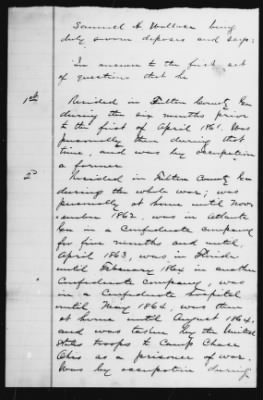 Samuel A. Wallace being
duly sworn deposes and says:
In answer to the first set
of questions that he
1st Resided in Fulton County Ga
during the six months prior
to the first of April 1861. Was
personally there during that
time, and was by occupation
a farmer
2d Resided in Fulton County Ga
during the whole war; was
personally at home until Nov-
ember 1862, was in Atlanta
Ga in a Confederate company
for five months and until
April 1863, was in Florida
until February 1864 in another
Confederate company, was
in a Confederate hospital
until May 1864, was then
at home until August 1864,
and was taken by the United
States troops to Camp Chase
Ohio as a prisoner of war.
Was by occupation during